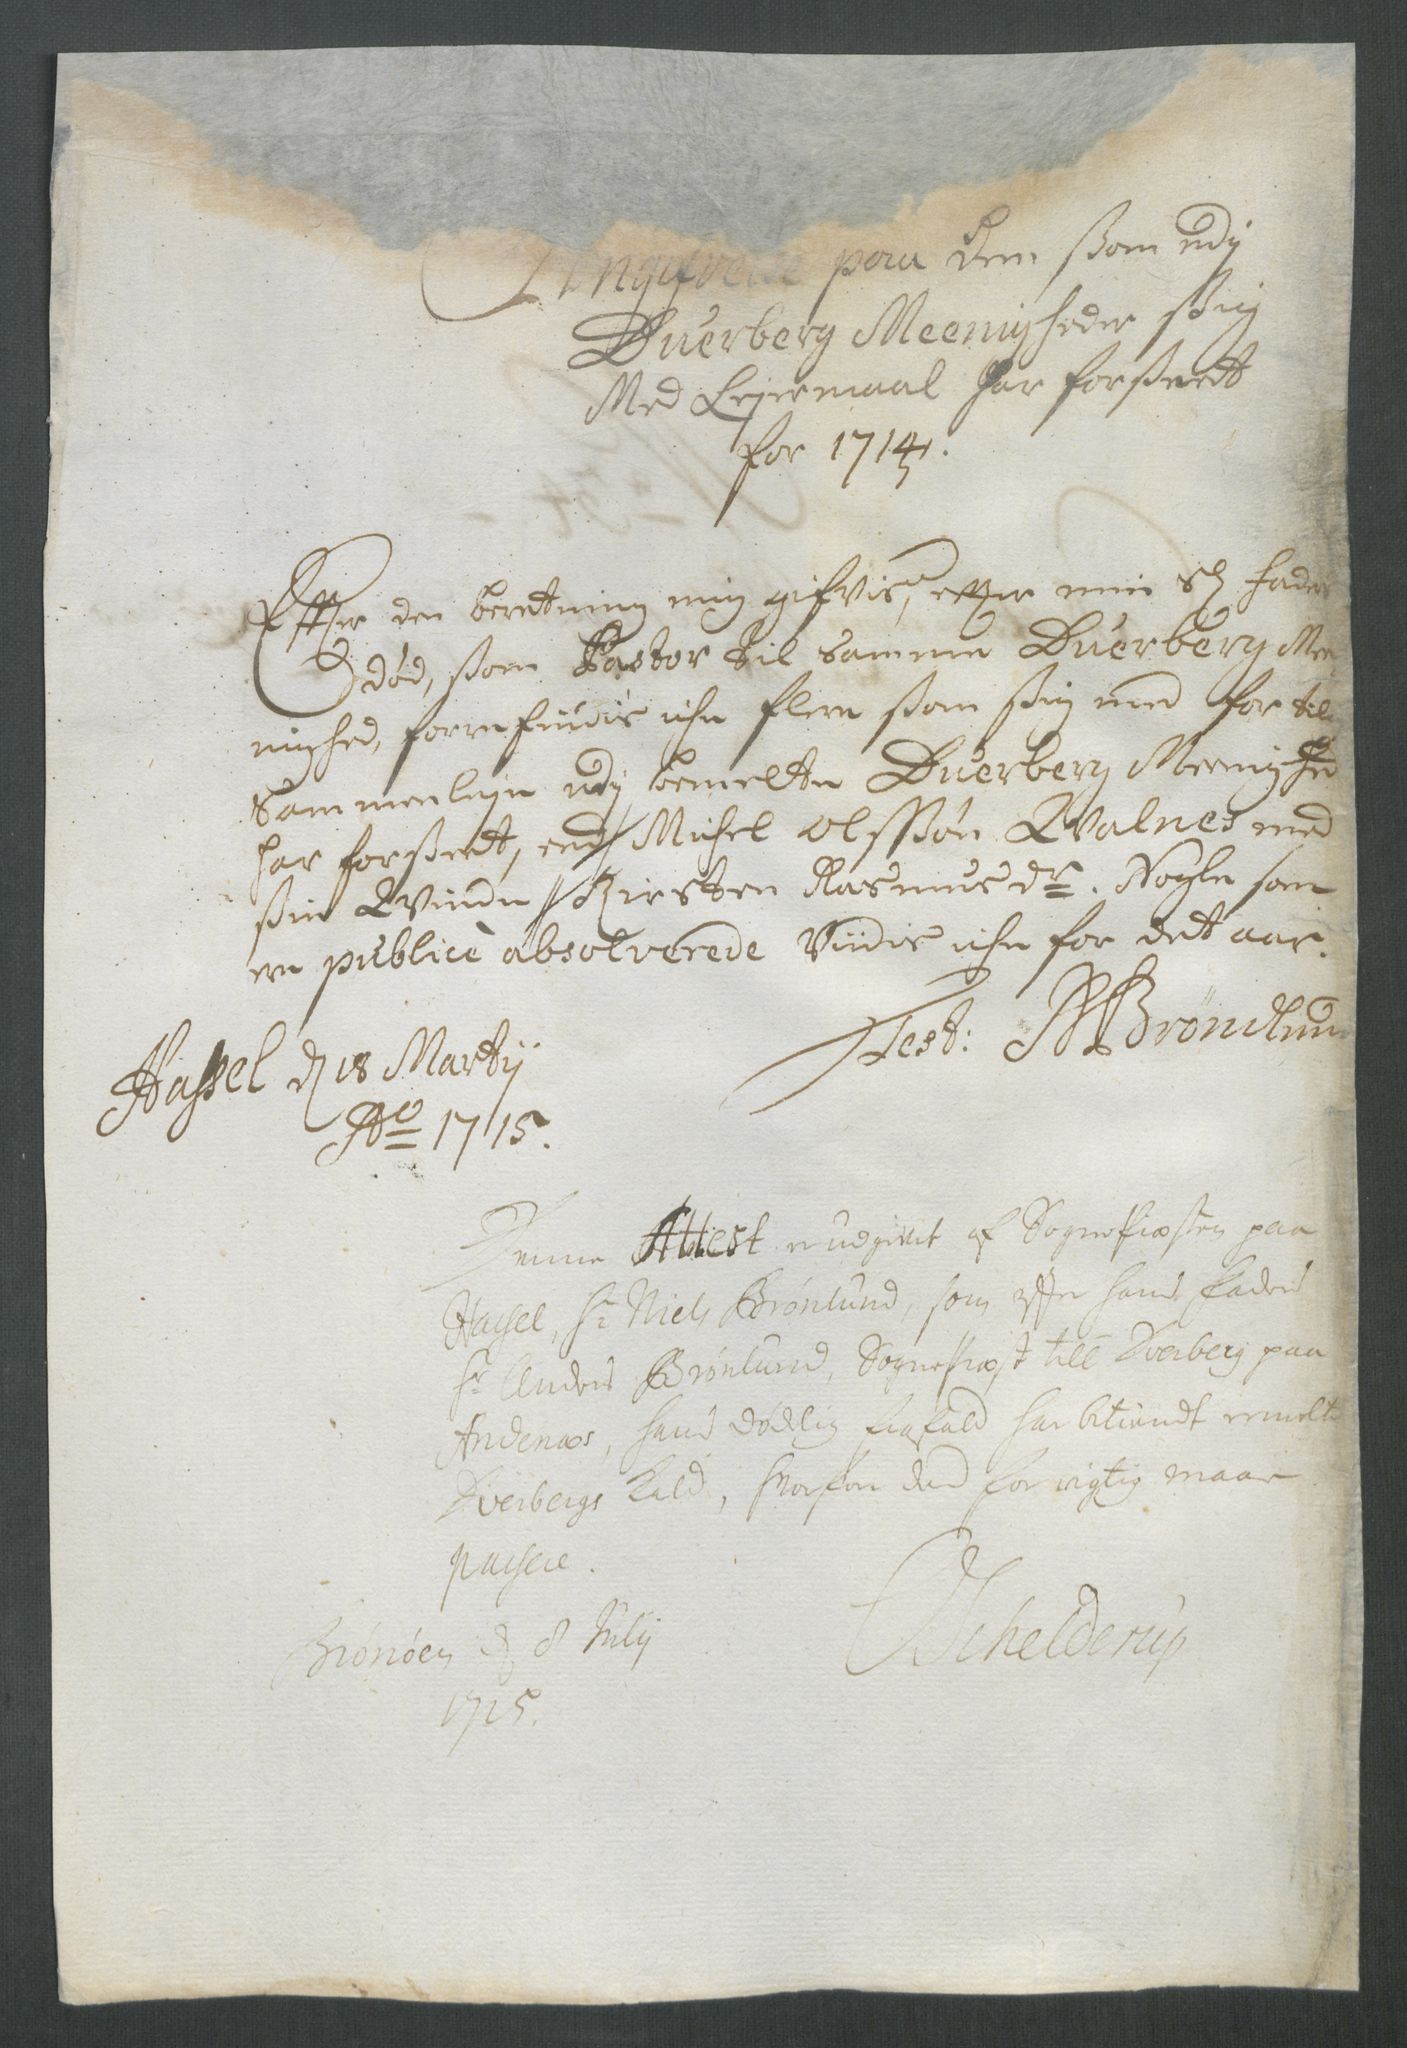 Angifvelse paa dem som udj
Duerberg Meenigheder sig
Med Leiermaal har forseett
for 1714.
Efter den beretning mig gifvis, efter min Sl Fader
död, som Pastor til samme Duerberg Mee
nighed, forrefindis iche flere som sig med for tilig
Sammenleye udj bemelte Duerberg Meenighe
har forseet, end Michel Olssön Qvalnes med
sin Qvinde Kirsten Rasmusdr. Nogle som
ere publicè absolverede Viides iche for det aar.
Test: NBrönlun
Hassel d 18 Martij
Ao 1715.
Denne Attest er udgivet af Sognepræsten paa
Hassel, hr Niels Brönlund, som efter hans Faders
hr Anders Brönlund, Sognepræst till Dverberg paa
Andenæs, hans dödelig frafald har betiendt ermelte
Dverbergs Kald, hvorfore dend for rigtig maae
passere.
Brönöen d 8 Julij
1715.
Schelderup